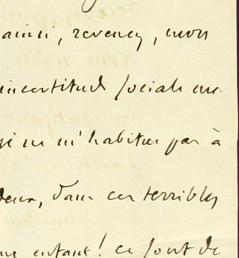 ainsi, revenez, mon
incertitude sociale me
je ne m'habitue pas à
deux, dans ces terribles
enfant! ce sont de